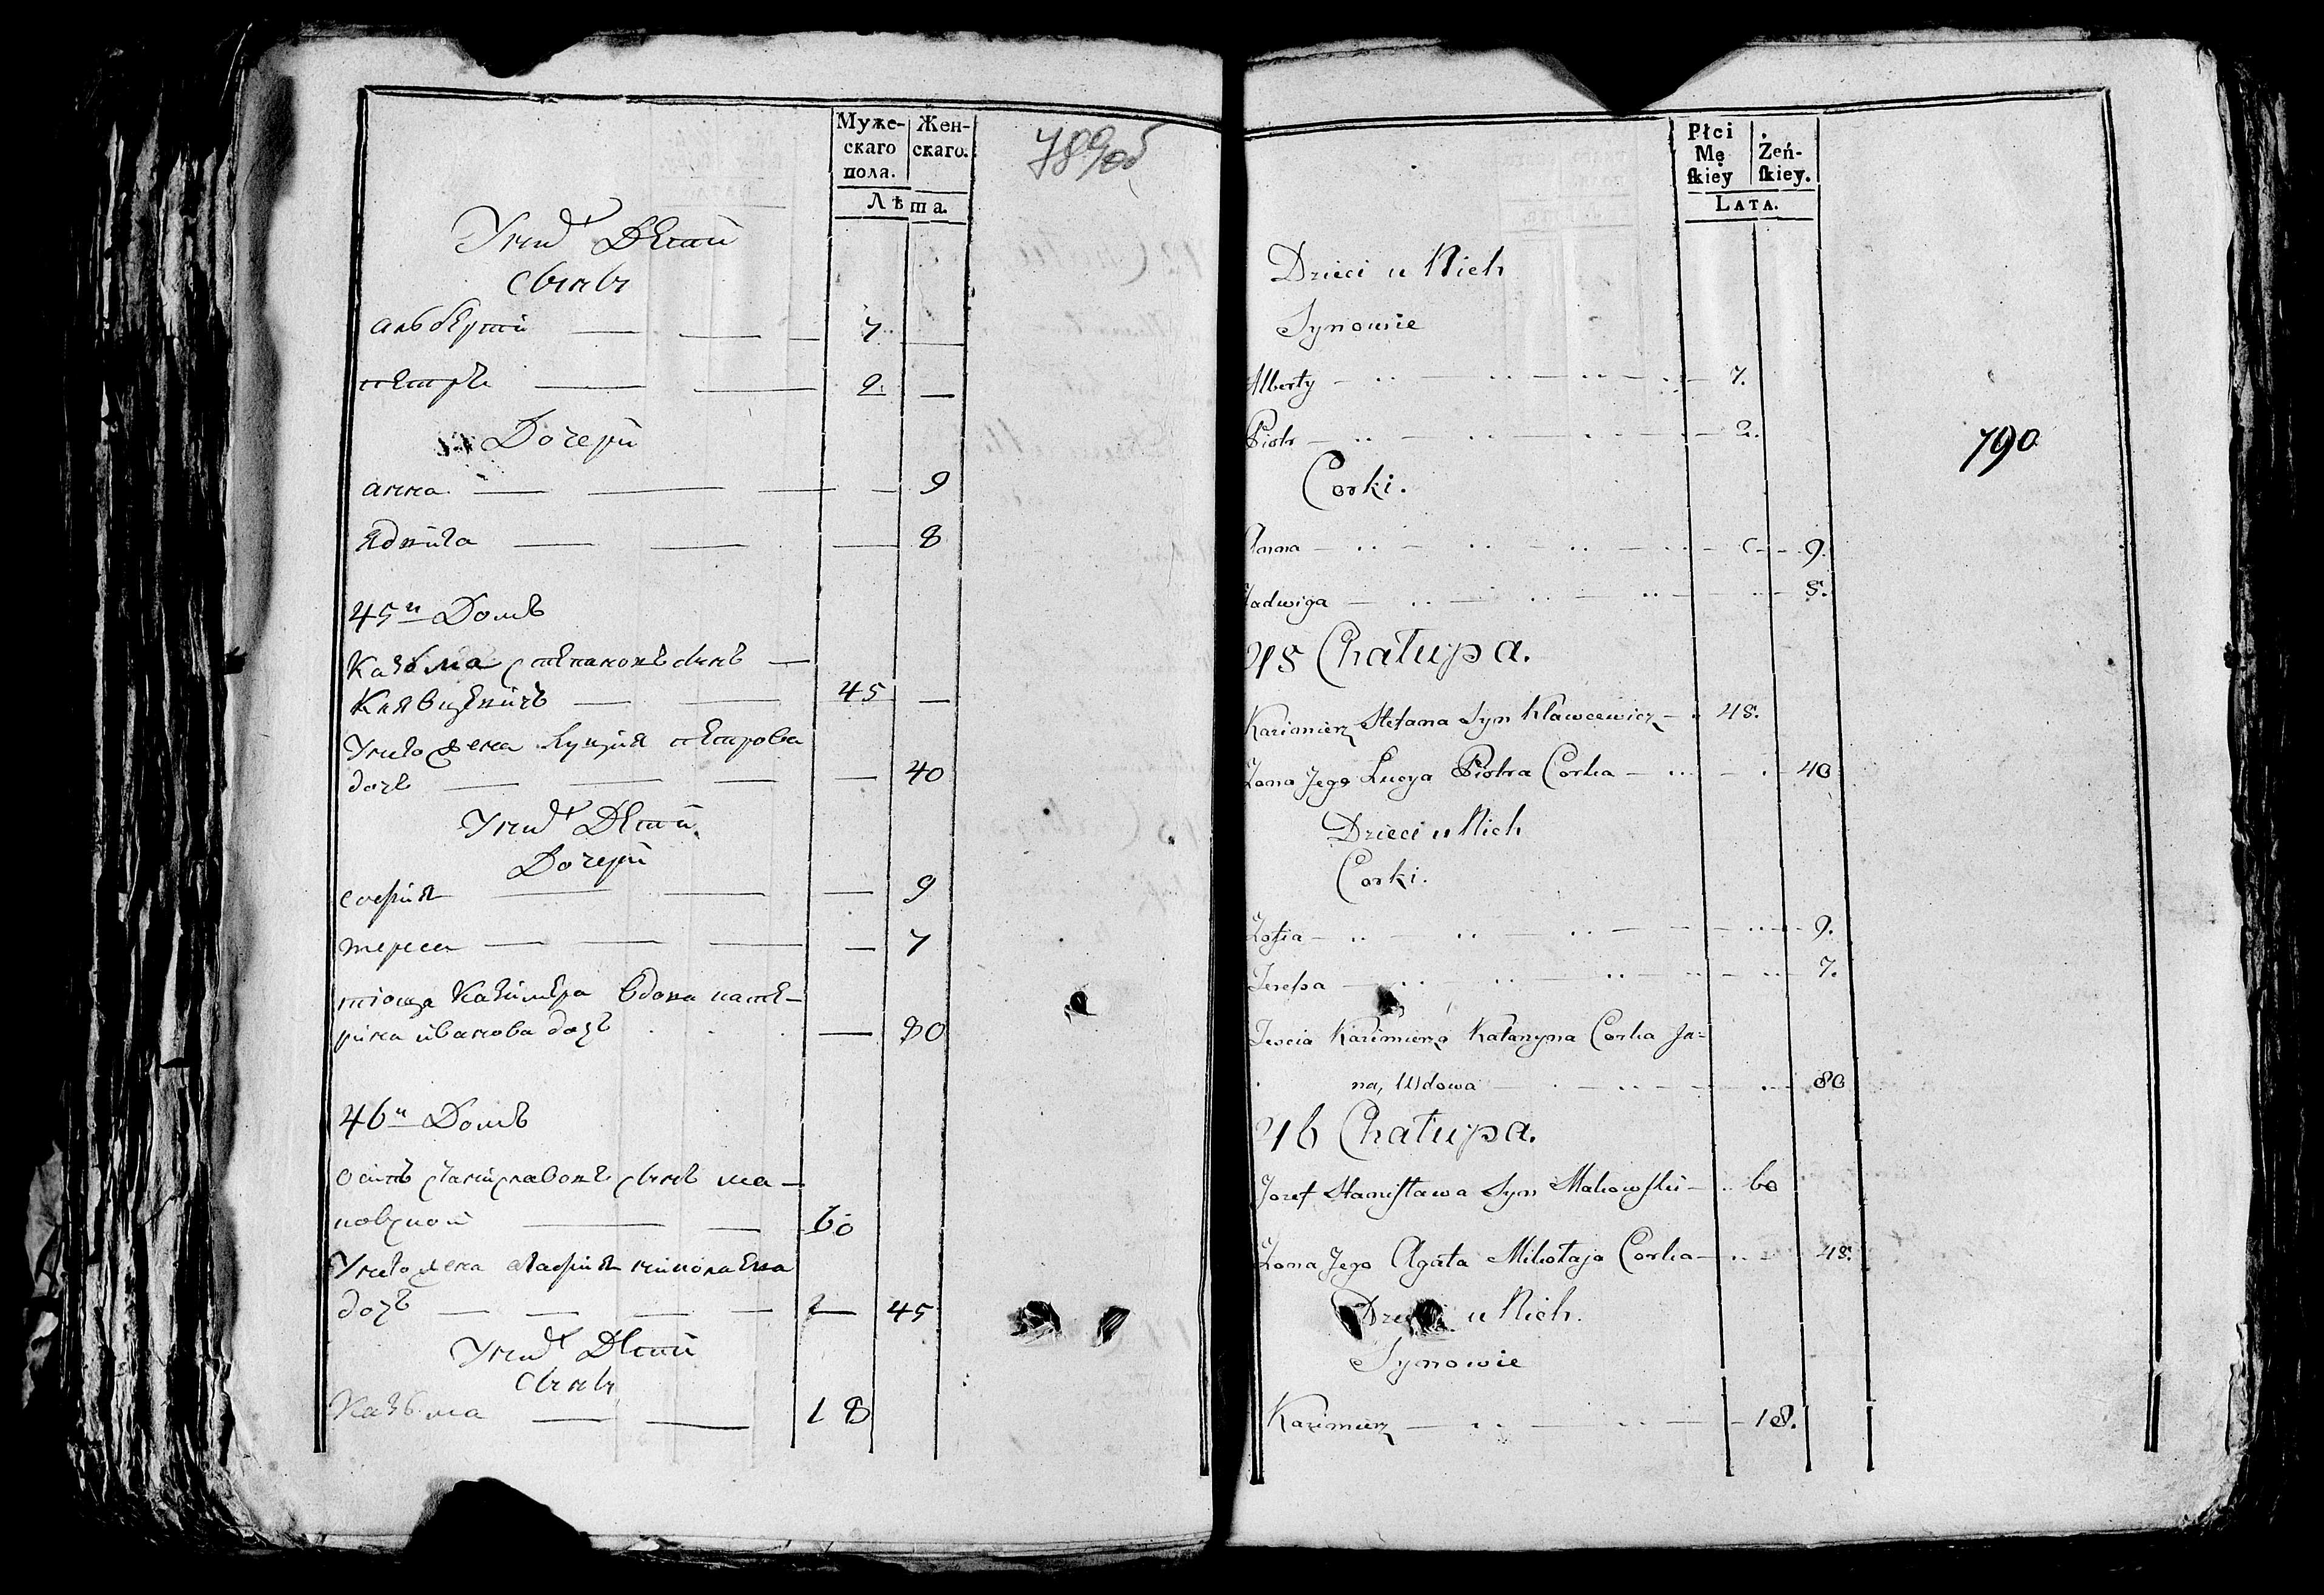 Муже-
скаго
пола.
Жен-
скаго.
Лѣта.
789об
У нихъ Дети
Сыны
альбертъ — — — 7 —
петръ — — 2 —
Дочери
анна — — — — 9
Ядвига — — — 8
45й Домъ
Казьма степановъ сынъ —
Клявцевичъ — — 45 —
У него жена Луция петрова
дочь — — — — 40
У нихъ Дети
Дочери
софия — — — 9
тереса — — — — 7
тіоща Казимера вдова кате-
рина иванова дочь — 80
46й Домъ
осипъ станиславовъ сынъ ма-
ковской — — 60
У него жена агафия николаева
дочь — — — — — 45
У нихъ Дети
Сыны
Казьма — — 18
Płci
Mę
ſkiey
Żeń-
ſkiey.
LATA.
Dzieci u Nich
Synowie
Alberty — 7.
Piotr — 2.
Corki.
790
Anna — 9.
Jadwiga — 8.
45 Chałupa.
Kazimierz Stefana Syn Klawcewicz — 45.
Zona Jego Lucya Piotra Corka — 40
Dzieci u Nich
Corki.
Zofia — 9.
Tereſsa — 7.
Tescia Kazimierza Katarzyna Corka Ja=
na, Wdowa — 80
46 Chałupa.
Jozef Staniſława Syn Makowſki — 60
Zona Jego Agata Mikołaja Corka — 45.
Dzieci u Nich.
Synowie
Kazimierz — 18.